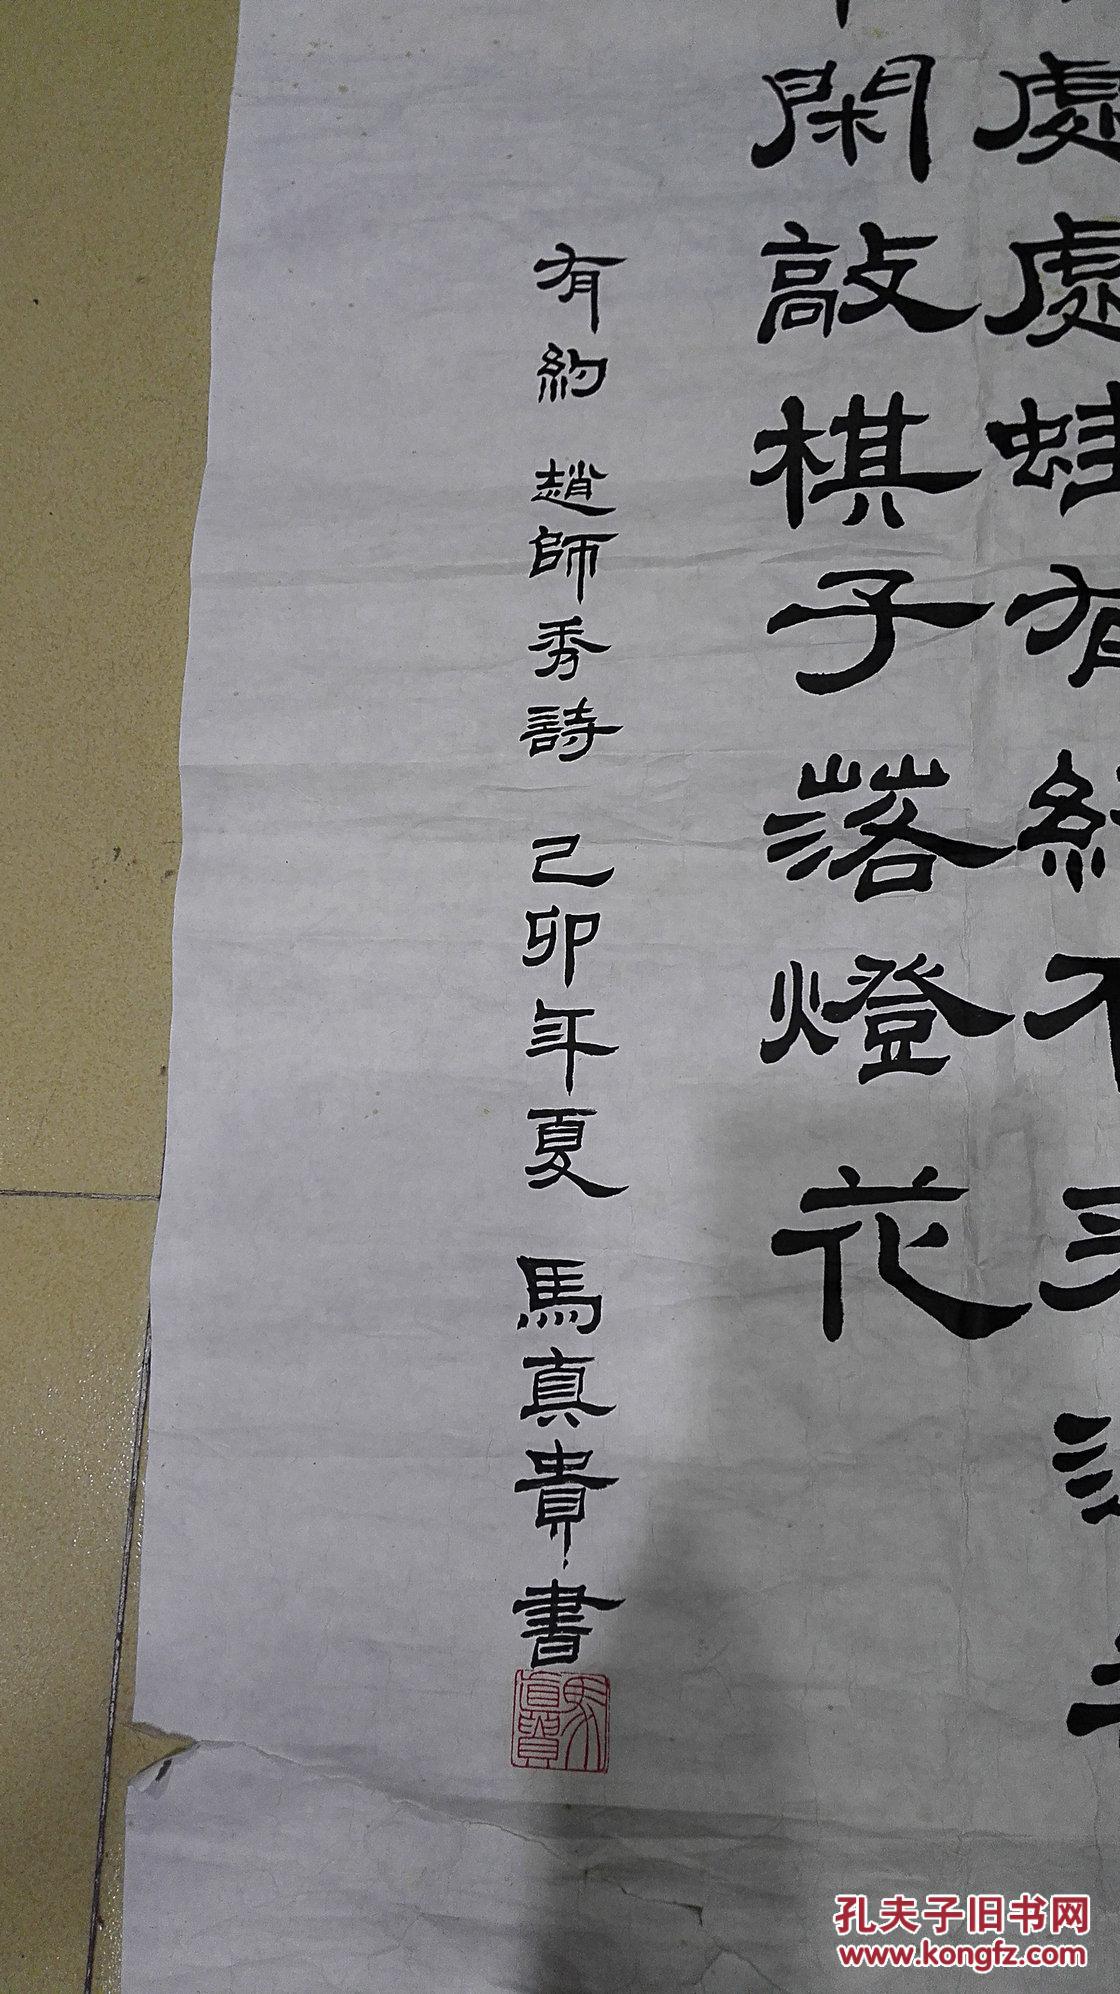 處處蛙有約不來過夜
閑敲棋子落燈花
有約 趙師秀詩 己卯年夏 馬真貴書
孔夫子旧书网
www.kongfz.com